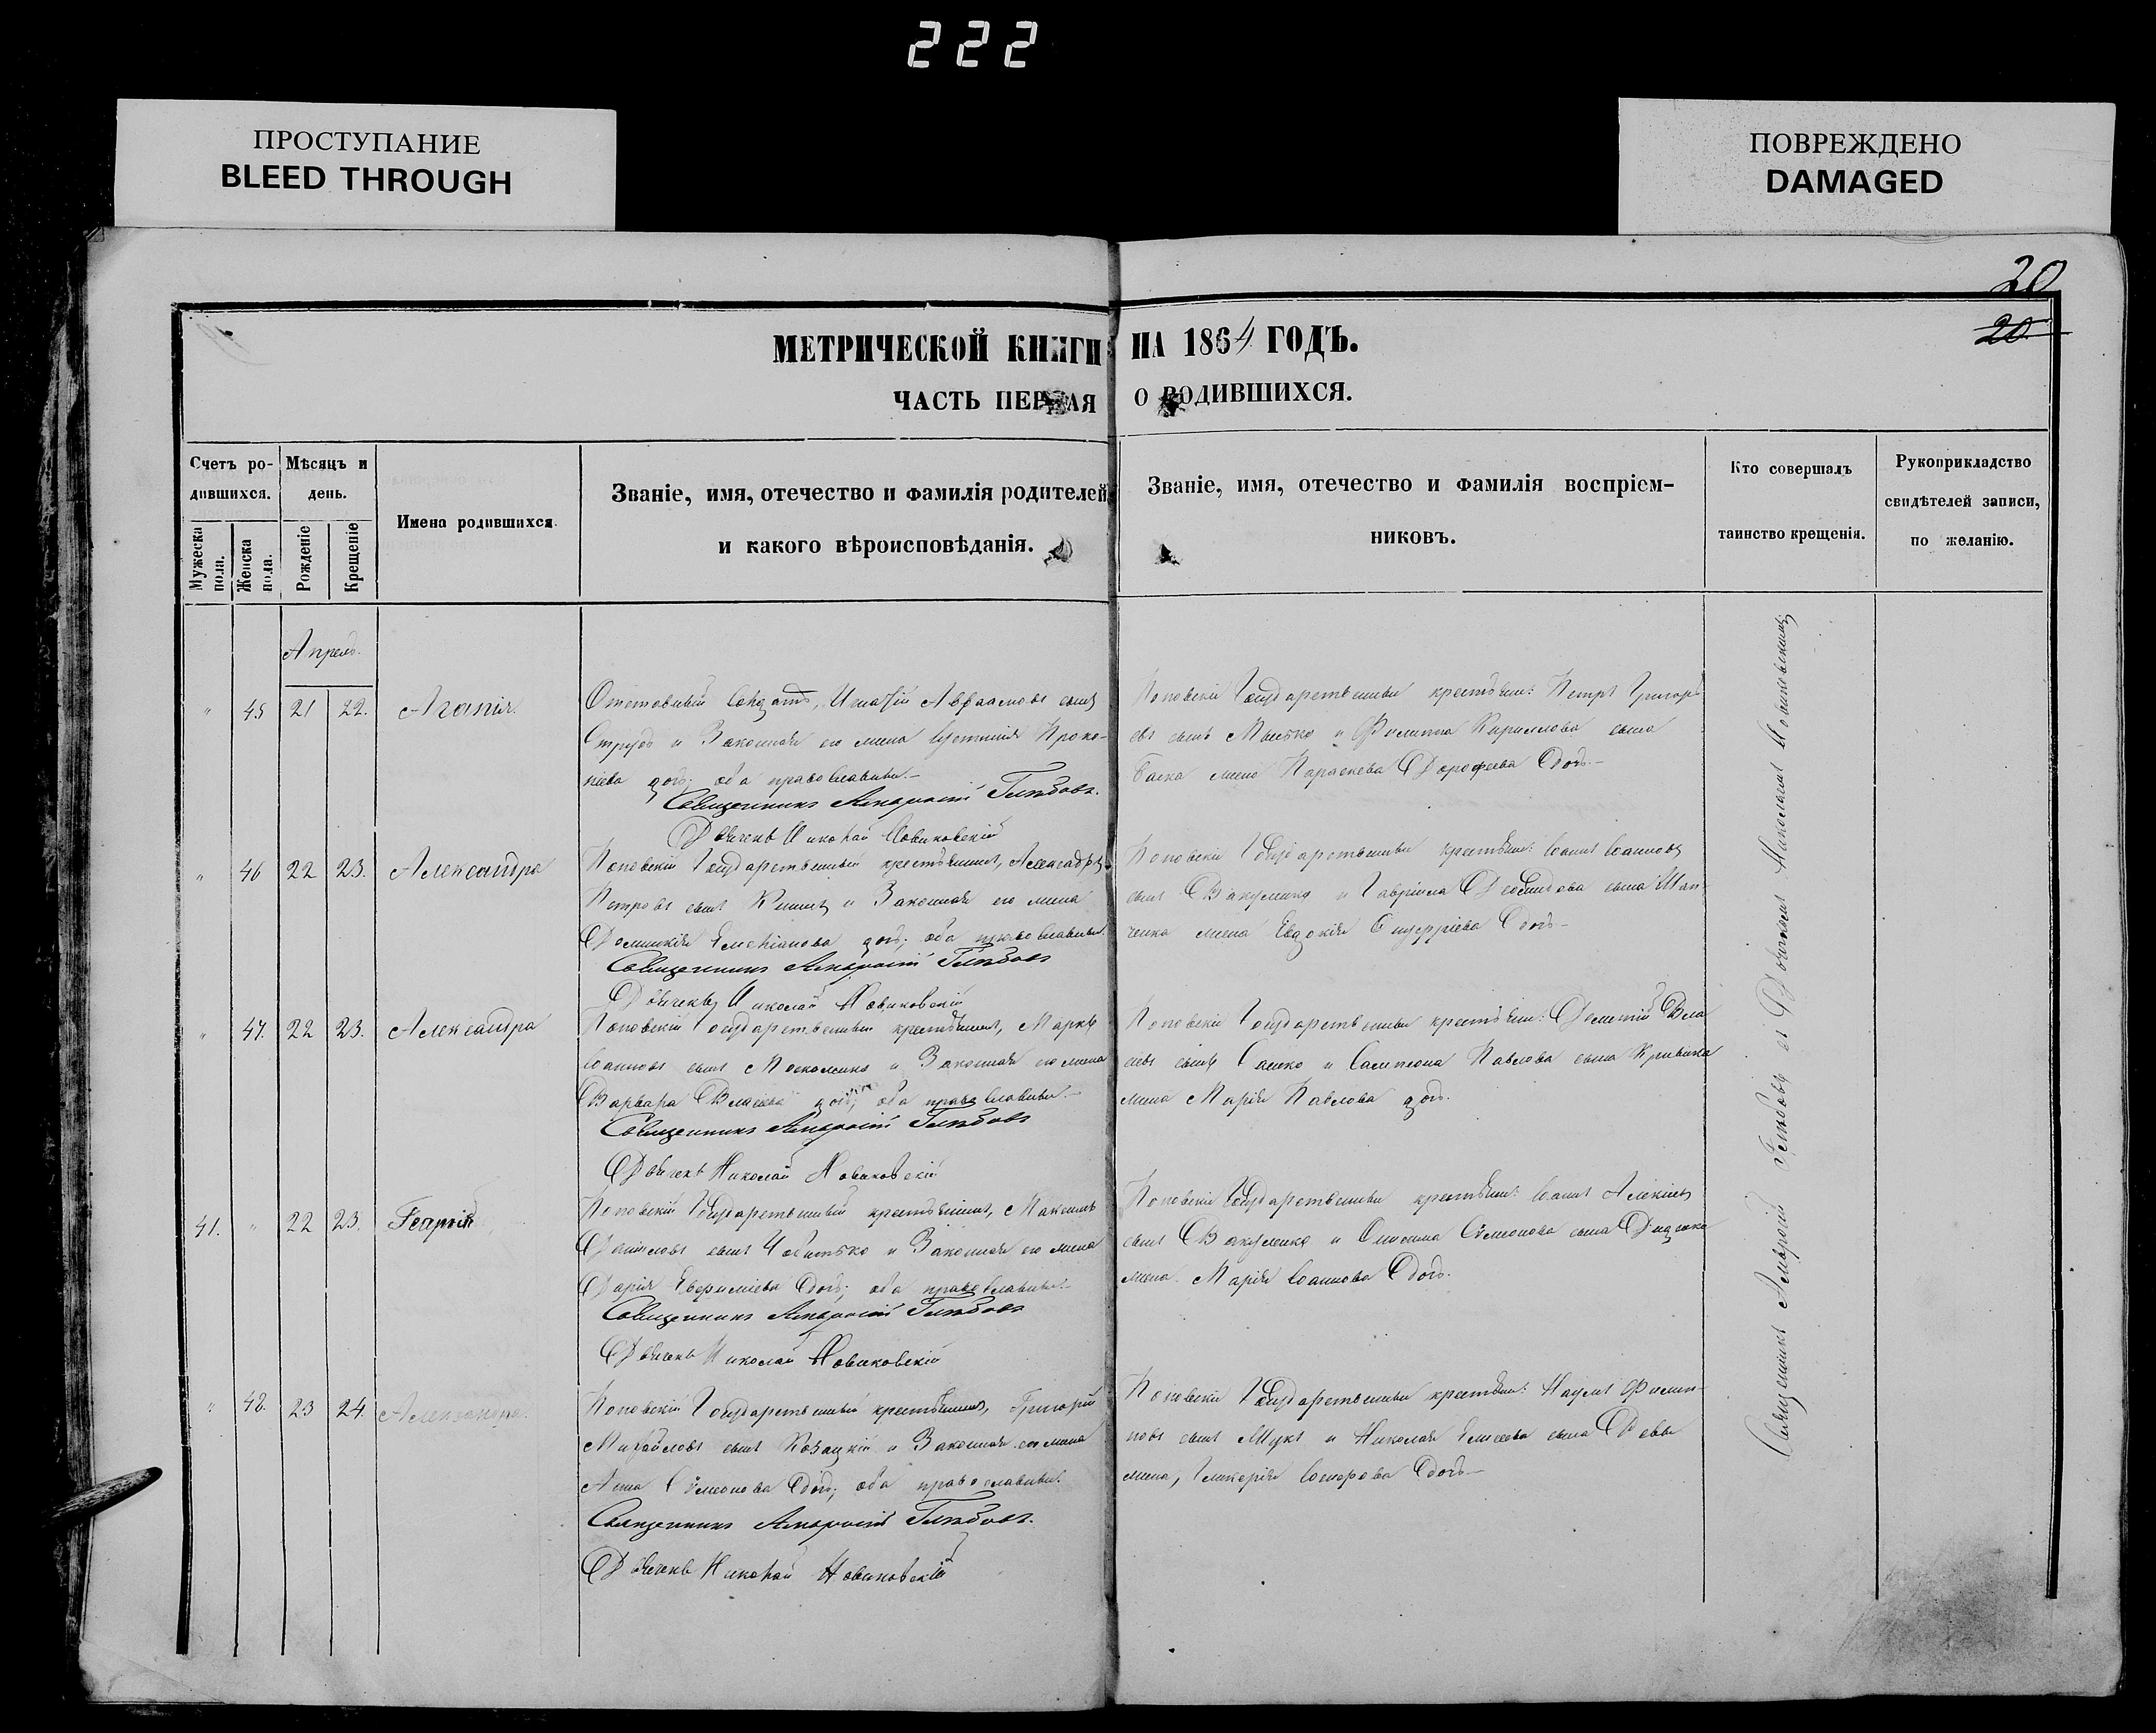 222
ПРОСТУПАНИЕ
BLEED THROUGH
ПОВРЕЖДЕНО
DAMAGED
20
20
МЕТРИЧЕСКОЙ КНИГИ НА 1864 ГОДЪ.
ЧАСТЬ ПЕРВАЯ О РОДИВШИХСЯ.
Счетъ ро-
дившихся.
Мужеска пола.
Женска пола.
Мѣсяцъ и
день.
Рожденіе
Крещеніе
Имена родившихся.
Званіе, имя, отечество и фамилія родителей
и какого вѣроисповѣданія.
Званіе, имя, отечество и фамилія воспріем-
никовъ.
Кто совершалъ
таинство крещенія.
Рукоприкладство
свидѣтелей записи,
по желанію.
Апрель.
" 45 21 22. Агапія.
Отставный Солдатъ, Игнатій Авраамовъ сынъ
и Законная его жена Проко-
піева дочь; оба православны.–
Священникъ Амвросій Глѣбовъ.
Дьячекъ Николай Новиковскій
Поповскіе Государственные крестьяне: Петръ Григорь
евъ сынъ и Филиппа Кириллова сына
жена Параскева Дорофеева дочь.–
" 46 22 23. Александра
Поповскій Государственный крестьянинъ, Александръ
Петровъ сынъ и Законная его жена
Домникія Емеліанова дочь; оба православны.
Священникъ Амвросій Глѣбовъ
Дьячекъ Николай Новиковскій
Поповскіе Государственные крестьяне: Іоаннъ Іоанновъ
сынъ Вакуленко и Гавріила сына Шап-
ченка жена Евдокія Онуфріева дочь–
" 47. 22 23. Александра
Поповскій Государственный крестьянинъ, Марко
Іоанновъ сынъ Москаленко и Законная его жена
Варвара Власіева дочь; оба православны.–
Священникъ Амвросій Глѣбовъ
Дьячекъ Николай Новиковскій
Поповскіе Государственные крестьяне: Влас
іевъ сынъ и Сампсона Павлова сына
жена Марія Павлова дочь.
41. " 22 23. Георгій
Поповскій Государственный крестьянинъ, Максимъ
Даніиловъ сынъ Чобитько и Законная его жена
Дарія Евфиміева дочь; оба православны.–
Священникъ Амвросій Глѣбовъ
Дьячекъ Николай Новиковскій
Поповскіе Государственные крестьяне: Іоаннъ Алексіевъ
сынъ Вакуленко и Симеонова сына Диденка
жена Марія Іоаннова дочь.
" 48. 23 24. Александра.
Поповскій Государственный крестьянинъ, Григорій
Михайловъ сынъ Козацкій и Законная его жена
Анна Симеонова дочь; оба православны.
Священникъ Амвросій Глѣбовъ.
Дьячекъ Николай Новиковскій
Поповскіе Государственные крестьяне: Наумъ Филип-
повъ сынъ и Николая Елисеева сына Девы
жена, Гликерія дочь–
Священникъ Амвросій Глѣбовъ съ Дьячкомъ Николаемъ Новиковскимъ